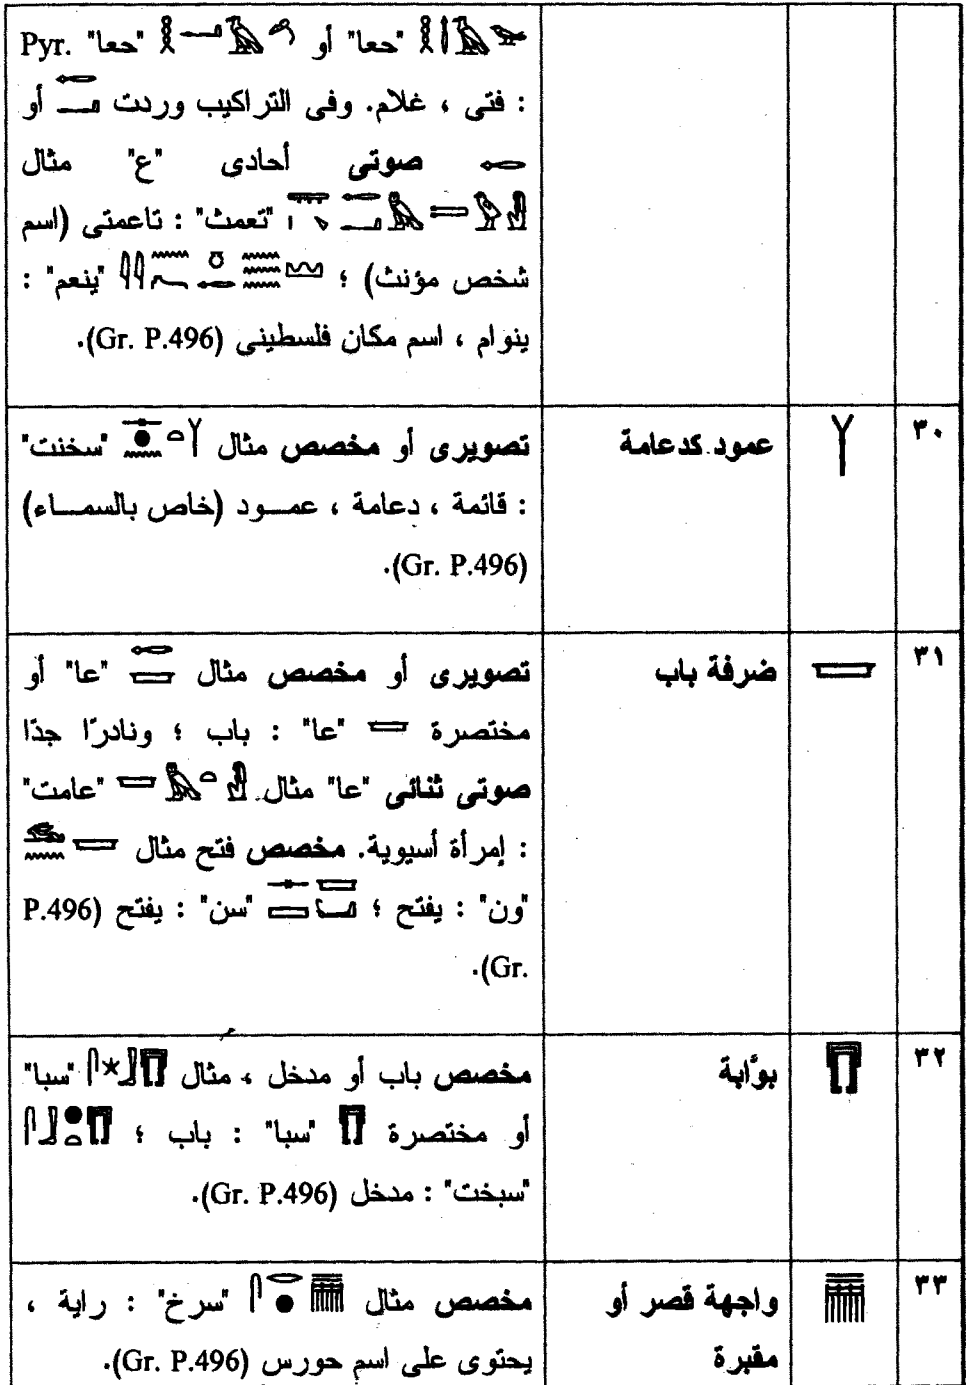 "حعا" أو "حعا" Pyr.
: فتى ، غلام. وفى التراكيب وردت أو
صوتى أحادى "ع" مثال
"تعمث" : تاعمتى (اسم
شخص مؤنث) ؛ "ينعم" :
ينوام ، اسم مكان فلسطينى (Gr. P.496).
٣٠ عمود كدعامة تصويرى أو مخصص مثال "سخنت"
: قائمة ، دعامة ، عمود (خاص بالسماء)
(Gr. P.496).
٣١ ضرفة باب تصويرى أو مخصص مثال "عا" أو
مختصرة "عا" : باب ؛ ونادرًا جدًا
صوتى ثنائى "عا" مثال "عامت"
: إمرأة أسيوية. مخصص فتح مثال
"ون" : يفتح ؛ "سن" : يفتح (P.496
Gr.).
٣٢ بوَّابة مخصص باب أو مدخل ، مثال "سبا"
أو مختصرة "سبا" : باب ؛
"سبخت" : مدخل (Gr. P.496).
٣٣ واجهة قصر أو مخصص مثال "سرخ" : راية ،
مقبرة يحتوى على اسم حورس (Gr. P.496).